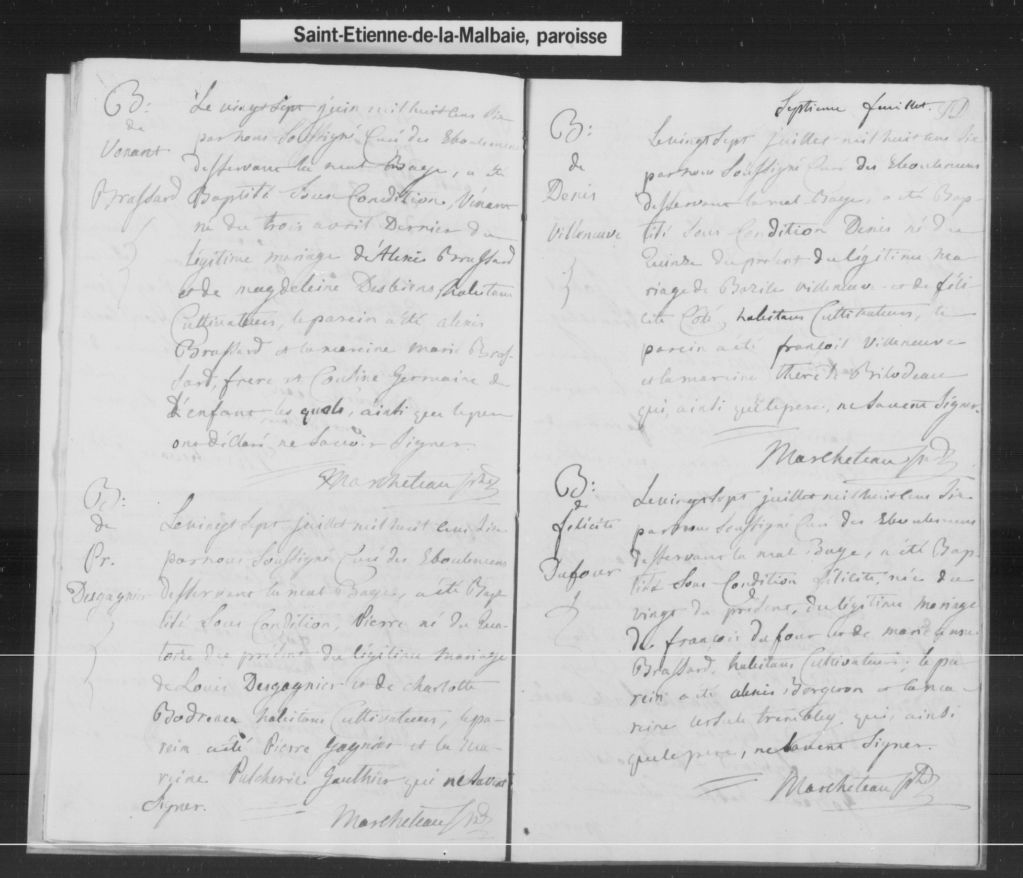 Saint-Etienne-de-la-Malbaie, paroisse
B:
de
Venant
Brassard
Le vingt sept juin mil huit cens six
par nous Soussigné Curé des Eboulemens
desservant la mal Baye, a été
Baptisé sous Condition, Venant
né du trois avril Dernier du
légitime mariage d'Alexis Brassard
et de magdeleine Desbiens, habitans
Cultivateurs, le parein a été alexis
Brassard et la mareine marie Bras-
sard, frere et Cousine Germaine de
l'enfant les quels, ainsi que le pere
ont déclaré ne savoir Signer
Marcheteau ptre
B:
de
Pr.
Desgagnier
Le vingt Sept juillet mil huit cens Six
par nous Soussigné Curé des Eboulemens
desservant la mal Baye, a été Bap
tisé Sous Condition, Pierre né du qua-
torze du présent du légitime mariage
de Louis Desgagnier et de charlotte
Bodreau habitans Cultivateurs, le pa-
rein a été Pierre Gagnier et la ma-
reine Pulcherie Gauthier qui ne savent
Signer.
Marcheteau ptre
Septieme feuillet.
B:
de
Denis
Villeneuve
Le vingt Sept juillet mil huit cens Six
par nous Soussigné Curé des Eboulemens
desservant la mal Baye, a été Bap-
tisé Sous Condition Denis né du
Quinze du présent du légitime ma-
riage de Bazile villeneuve et de féli-
cité Coté, habitans Cultivateurs, le
parein a été françois Villeneuve
et la mareine therese Bilodeau
qui, ainsi que le pere, ne savent Signer.
Marcheteau ptre
B:
de
félicité
Dufour
Le vingt Sept juillet mil huit cens Six
par nous Soussigné Curé des Eboulemens
desservant la mal Baye, a été Bap-
tisée Sous Condition félicité, née du
vingt du présent, du légitime mariage
de françois dufour et de marie
Brassard, habitans Cultivateurs, le pa-
rein a été alexis Bergeron et la ma-
reine ursule trembley, qui, ainsi
que le pere, ne savent Signer.
Marcheteau ptre